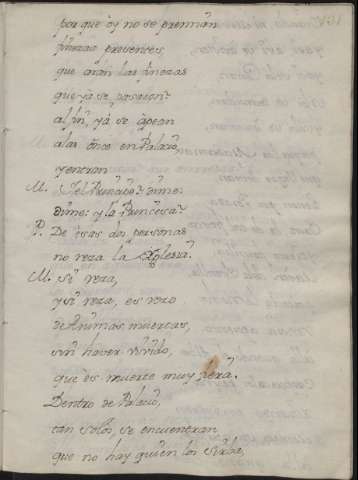 por que oy no se premian
finezas presentes,
que arán las finezas
que ya se pasaron?
al fin, ya se apean
a las once en Palacio,
y entran
M. Y el Principe? dime:
dime: y la Princesa?
P. De esas dos personas
no reza la Yglesia.
M. Si reza,
y si reza, es rezo
de Animas muertas,
sin haver vivido,
que es muerte muy fiera.
Dentro de Palacio,
tan solos se encuentran
que no hay quien los sirbe,